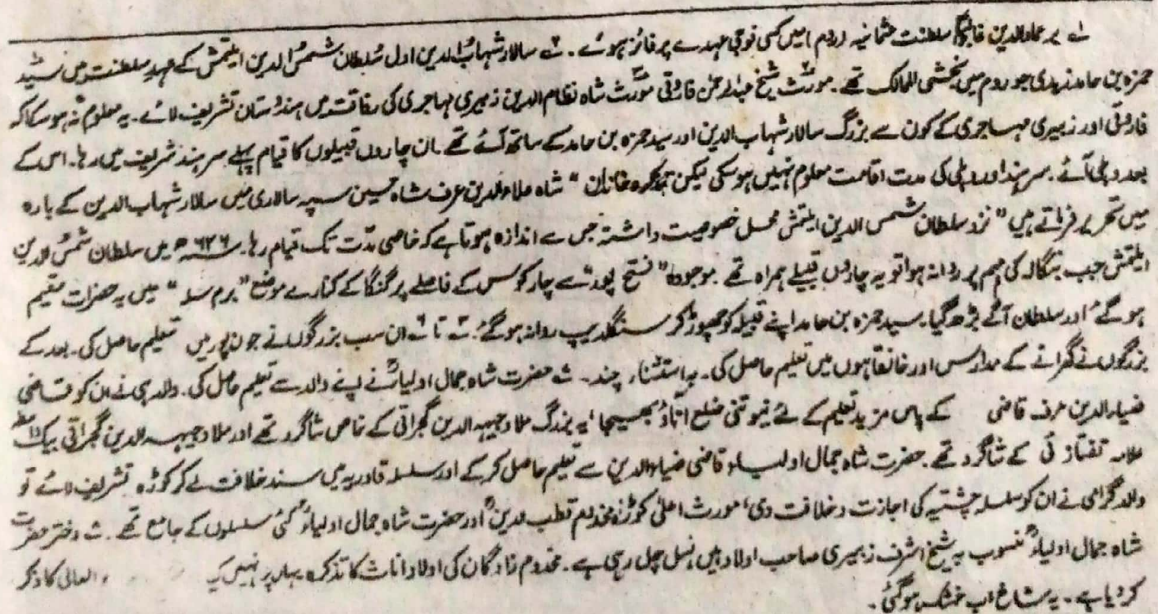 لے پر عمادالدین غالباً سلطنت عثمانیہ (روم) میں کسی فوجی عہدے پر فائز ہوئے۔ ۲ے سالار شہاب الدین اول سُلطان شمسُ الدین ایلتمش کے عہدِ سلطنت میں سید
حمزہ بن حامد زیدی جو روم میں بخشی الممالک تھے۔ مورث شیخ فاروقی مورث شاہ نظام الدین زبیری مہاجری کی رفاقت میں ہندوستان تشریف لائے۔ یہ معلوم نہ ہو سکا کہ
فاروقی اور زبیری مہاجری کے کون سے بزرگ سالار شہاب الدین اور سید حمزہ بن حامد کے ساتھ آئے تھے۔ ان چاروں قبیلوں کا قیام پہلے سرہند شریف میں رہا۔ اس کے
بعد دہلی آئے۔ سرہند اور دہلی کی مدت اقامت معلوم نہیں ہو سکی لیکن خاندان " شاہ علاءالدین عرف شاہ حسین سپہ سالاری میں سالار شہاب الدین کے بارہ
میں تحریر فرماتے ہیں " نزد سلطان شمس الدین ایلتمش محل خصوصیت داشتہ جس سے اندازہ ہوتا ہے کہ خاصی مدّت تک قیام رہا۔ ۶۲۶ھ میں سلطان شمسُ الدین
ایلتمش جب بنگالہ کی مہم پر روانہ ہوا تو یہ چاروں قبیلے ہمراہ تھے۔ موجودہ " فتح پور" سے چار کوس کے فاصلے پر گنگا کے کنارے موضع " میں یہ حضرات مقیم
ہو گئے اور سلطان آگے بڑھ گیا۔ سید حمزہ بن حامد اپنے قبیلہ کو چھوڑ کر سنگلدیپ روانہ ہو گئے۔ تا ان سب بزرگوں نے جون پور میں تعلیم حاصل کی۔ بعد کے
بزرگوں نے گھرانے کے مدارس اور خانقاہوں میں تعلیم حاصل کی۔ بہ استثناء چند۔ حضرت شاہ جمال اولیاءؒ نے اپنے والد سے تعلیم حاصل کی۔ والد ہی نے ان کو قاضی
ضیاءالدین عرف قاضی کے پاس مزید تعلیم کے لئے نیوتنی ضلع اناؤ بھیجا۔ یہ بزرگ ملا وجیہہ الدین گجراتی کے خاص شاگرد تھے اور ملا وجیہہ الدین گجراتی بیک واسطہ
علامہ تفتازنی کے شاگرد تھے۔ حضرت شاہ جمال اولیاء قاضی ضیاءالدین سے تعلیم حاصل کر کے اور سلسلہ قادریہ میں سند خلافت لے کر کوڑہ تشریف لائے تو
والد گرامی نے ان کو سلسلہ چشتیہ کی اجازت و خلافت دی، مورث اعلیٰ کوڑہ مخدوم قطب الدینؒ اور حضرت شاہ جمال اولیاءؒ کئی سلسلوں کے جامع تھے۔ دختر حضرت
شاہ جمال اولیاءؒ منسوب بہ شیخ اشرف زبیری صاحب اولاد ہیں، نسل چل رہی ہے۔ مخدوم زادگان کی اولاد اناث کا تذکرہ یہاں پر نہیں کیا العالی کا ذکر
کر دیا ہے۔ یہ شاخ اب خشک ہو گئی۔